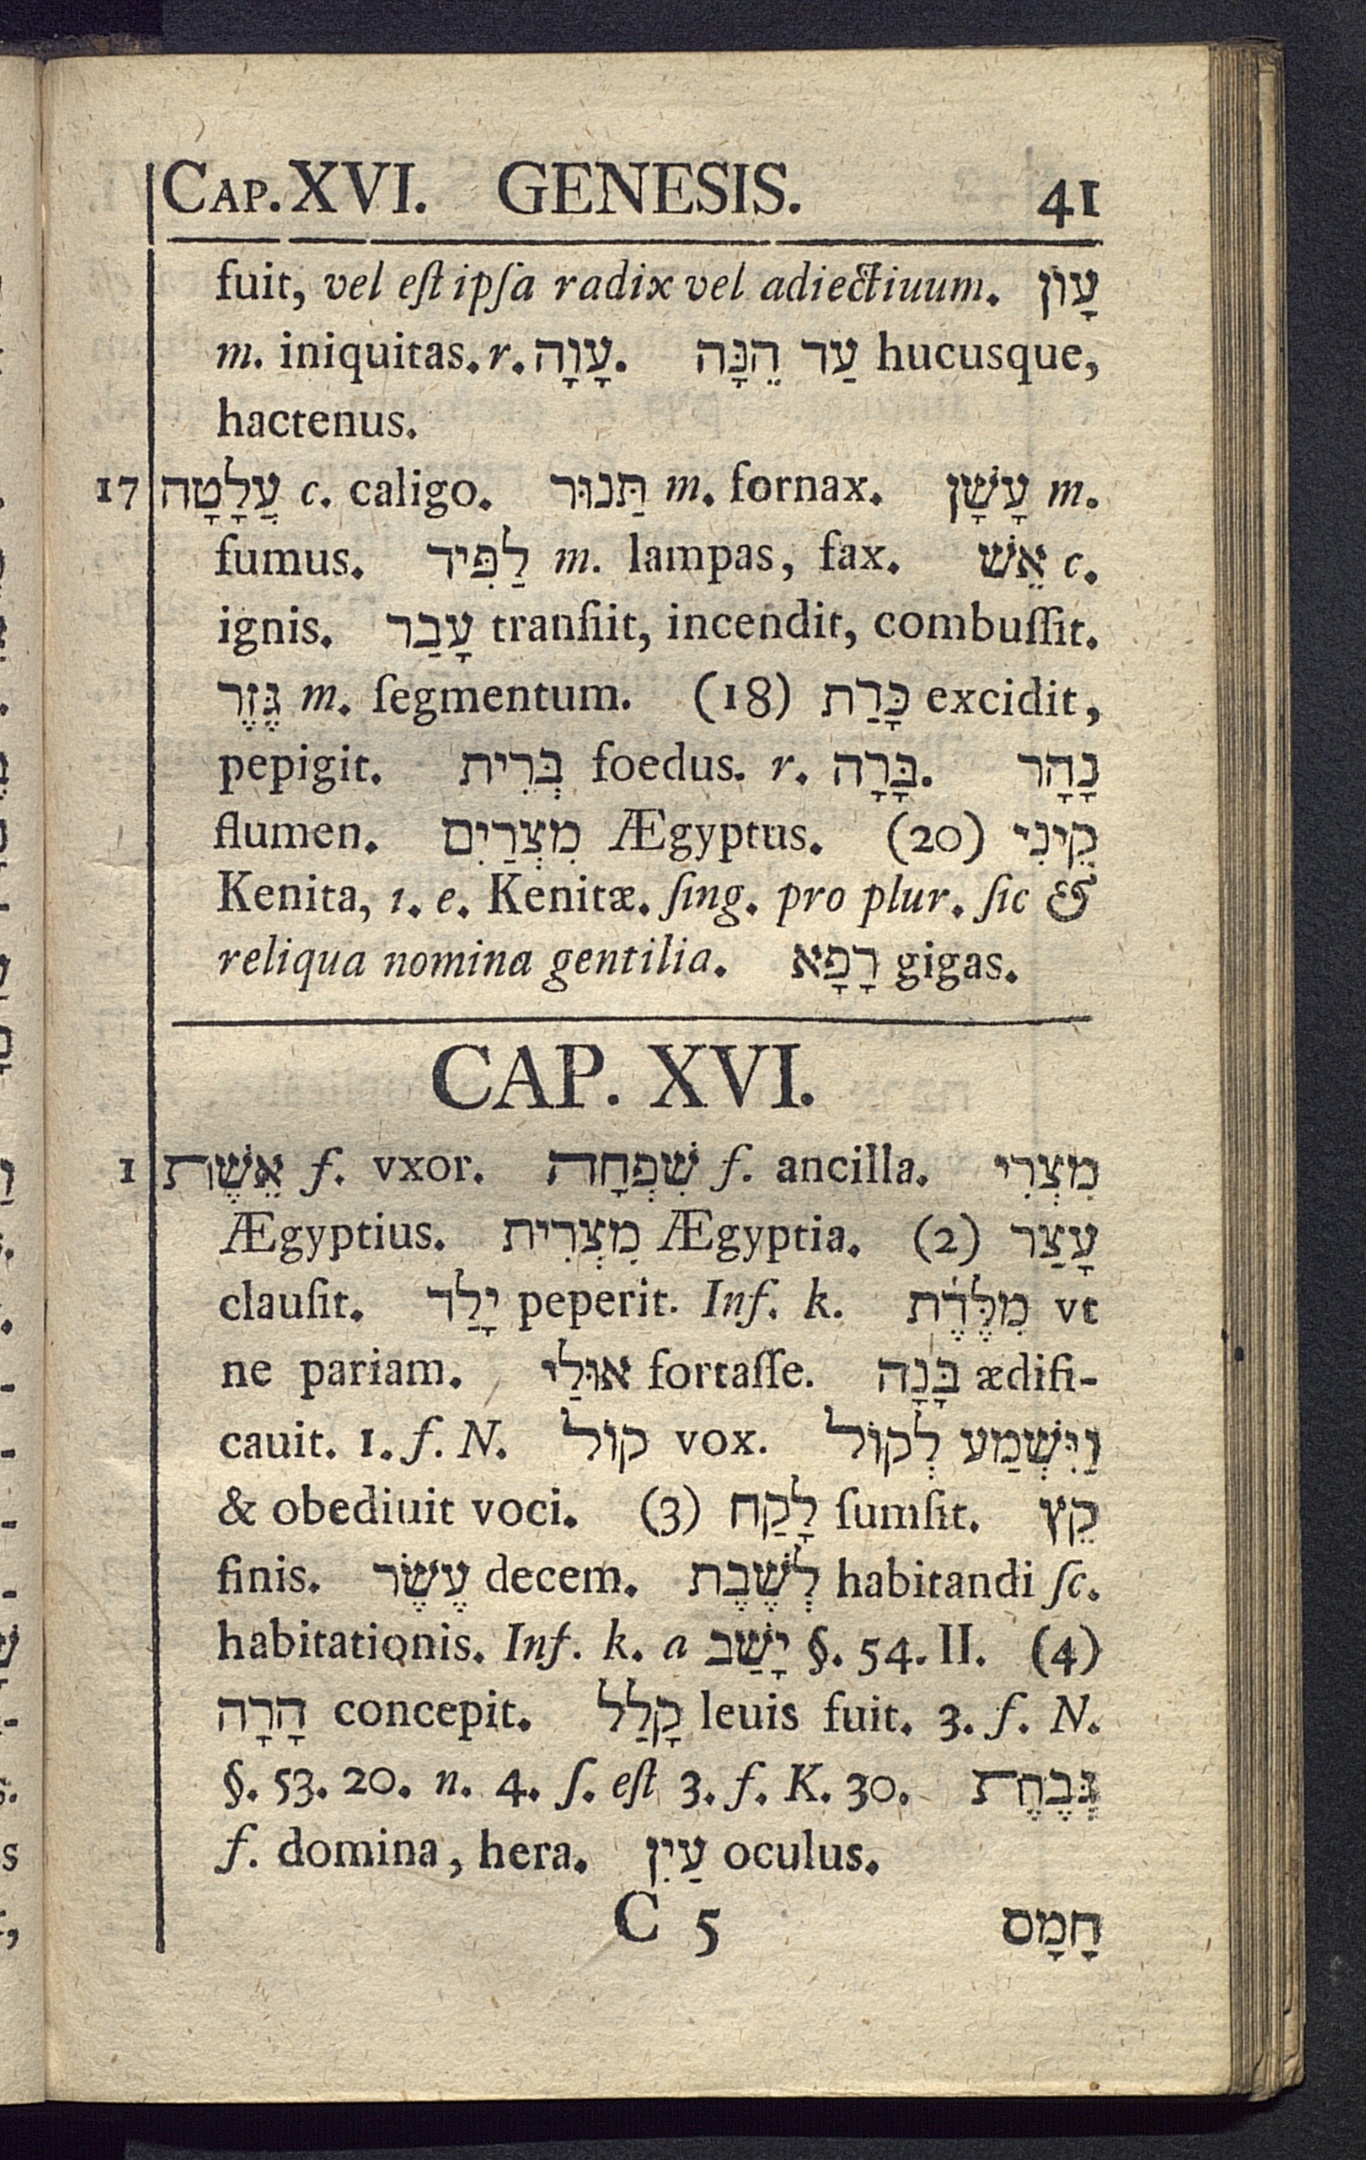 CAP. XVI. GENESIS. 41
fuit, vel eſt ipſa radix vel adiectiuum. עָוֹן
m. iniquitas. r. עָוָה. עַד הֵנָּה hucusque,
hactenus.
17 עֲלָטָה c. caligo. תַּנּוּר m. fornax. עָשָׁן m.
fumus. לַפִּיד m. lampas, fax. אֵשׁ c.
ignis. עָבַר tranſiit, incendit, combuſſit.
גֶּזֶר m. ſegmentum. (18) כָּרַת excidit,
pepigit. בְּרִית foedus. r. בָּרָה. נָהָר
flumen. מִצְרַיִם Ægyptus. (20) קֵינִי
Kenita, i. e. Kenitæ. ſing. pro plur. ſic &
reliqua nomina gentilia. רָפָא gigas.
CAP. XVI.
1 אֵשֶׁת f. vxor. שִׁפְחָה f. ancilla. מִצְרִי
Ægyptius. מִצְרִית Ægyptia. (2) עָצַר
clauſit. יָלַד peperit. Inf. k. מִלֶּדֶת vt
ne pariam. אוּלַי fortaſſe. בָּנָה ædifi-
cauit. 1. f. N. קוֹל vox. וַיִּשְׁמַע לְקוֹל
& obediuit voci. (3) לָקַח ſumſit. קֵץ
finis. עֶשֶׂר decem. לְשֶׁבֶת habitandi ſc.
habitationis. Inf. k. a יָשַׁב §. 54. II. (4)
הָרָה concepit. קָלַל leuis fuit. 3. f. N.
§. 53. 20. n. 4. ſ. eſt 3. f. K. 30. גְּבֶחֶת
f. domina, hera. עַיִן oculus.
C 5 חָמָס